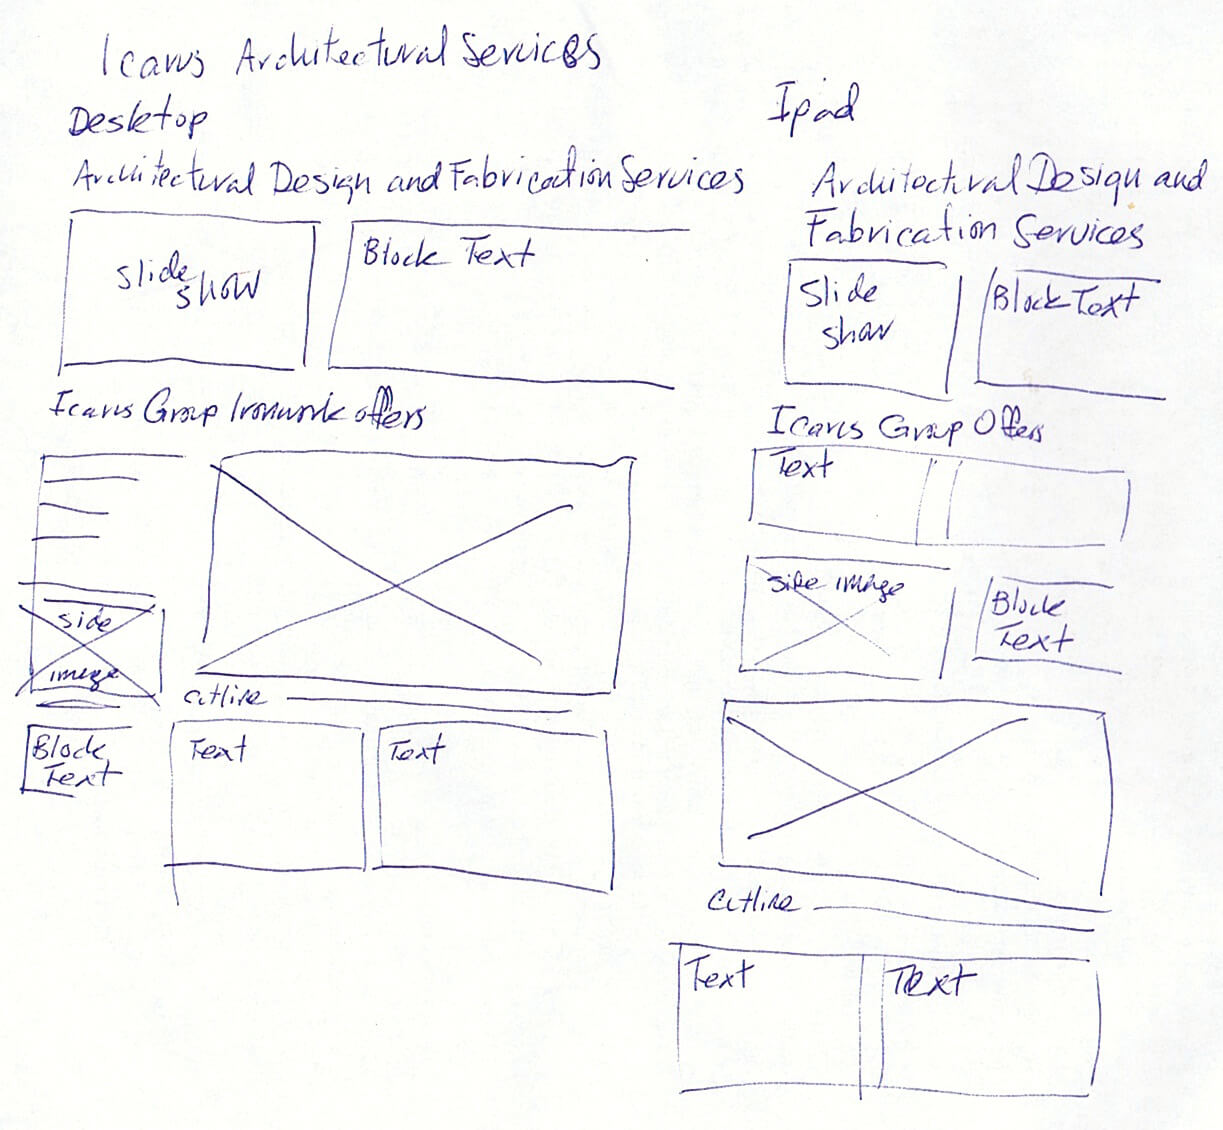 Icarus Architectural Services
Desktop
Architectural Design and Fabrication Services
Slide
show
Block Text
Icarus Group Ironwork offers
side
image
Cutline
Block
Text
Text
Text
Ipad
Architectural Design and
Fabrication Services
Slide
show
Block Text
Icarus Group Offers
Text
side image
Block
Text
Cutline
Text
Text